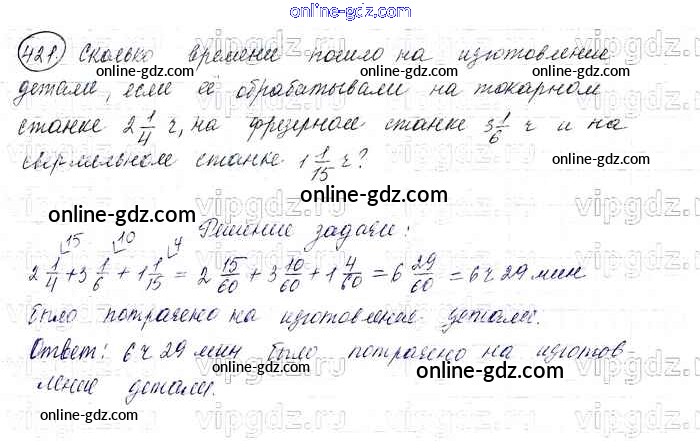 online-gdz.com
421. Сколько времени пошло на изготовление
online-gdz.com online-gdz.com
детали, если её обрабатывали на токарном
станке 2 1/4 ч, на фрезерном станке 3 1/6 ч и на
online-gdz.com online-gdz.com
сверлильном станке 1 1/15 ч?
online-gdz.com
Решение задачи:
15 10 4
2 1/4 + 3 1/6 + 1 1/15 = 2 15/60 + 3 10/60 + 1 4/60 = 6 29/60 = 6 ч 29 мин
online-gdz.com online-gdz.com
Было потрачено на изготовление детали.
online-gdz.com
Ответ: 6 ч 29 мин было потрачено на изготов
online-gdz.com
ление детали.
online-gdz.com
online-gdz.com